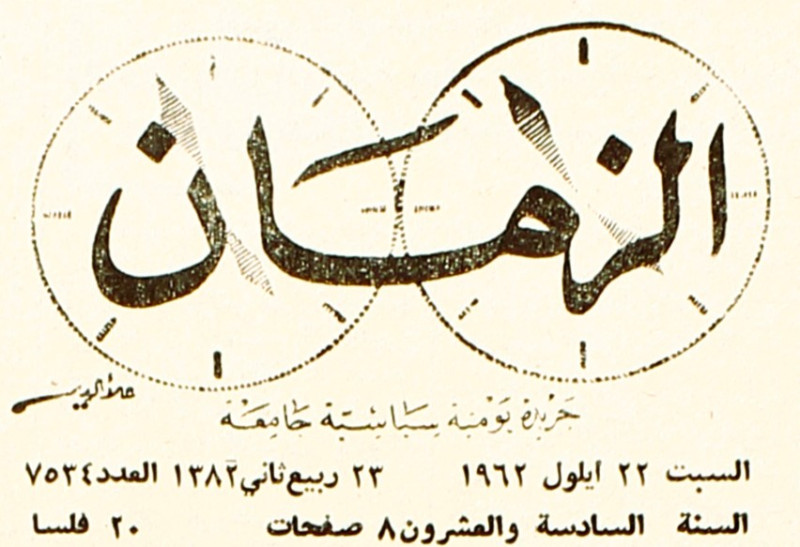 الزمان
علاءالدين
جريدة يومية سياسية جامعة
السبت ٢٢ ايلول ١٩٦٢ ٢٣ ربيع ثاني ١٣٨٢ العدد ٧٥٣٤
السنة السادسة والعشرون ٨ صفحات ٢٠ فلسا